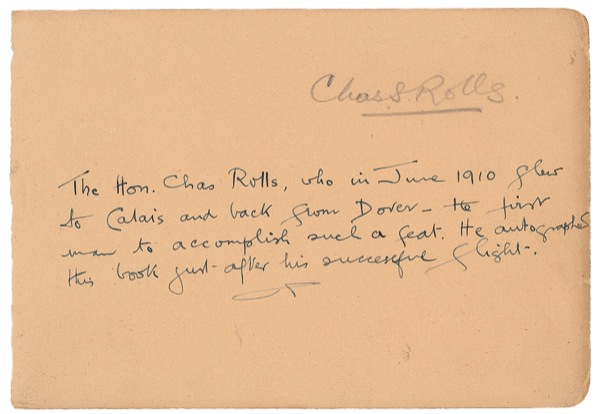 Chas. S. Rolls.
The Hon. Chas Rolls, who in June 1910 flew
to Calais and back from Dover – the first
man to accomplish such a feat. He autographed
this book just after his successful flight.